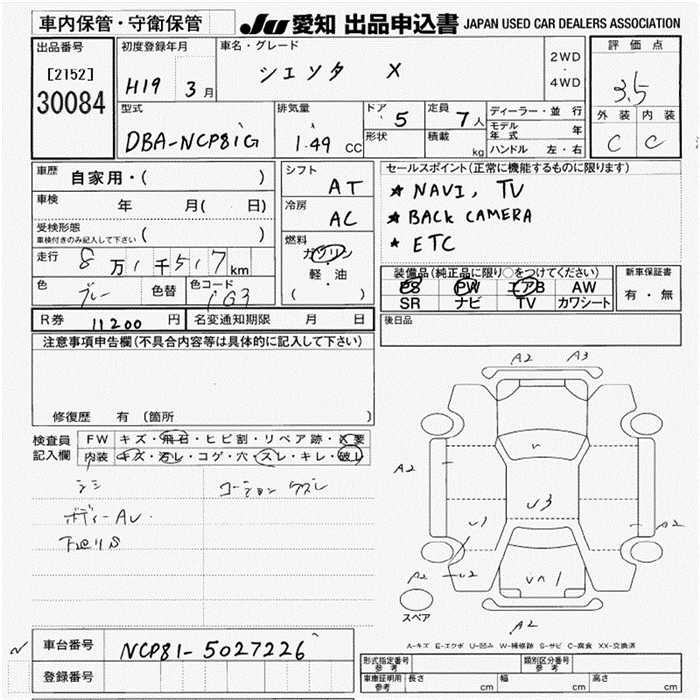 車内保管・守衛保管
JU 愛知 出品申込書 JAPAN USED CAR DEALERS ASSOCIATION
出品番号
[2152]
30084
初度登録年月
H19 3月
車名・グレード
シエンタ X
2WD
・
4WD
評価点
3.5
外装 内装
C C
型式
DBA-NCP81G
排気量
1.49 CC
ドア
5
形状
定員
7人
積載
kg
ディーラー・並行
モデル年式 年
ハンドル 左・右
車歴
自家用・( )
車検
年 月( 日)
受検形態
車検付きのみ記入して下さい ( )
走行
8万1千517km
色
ブルー
色替
色コード
シフト
AT
冷房
AC
燃料
ガソリン
軽・油
( )
セールスポイント(正常に機能するものに限ります)
★ NAVI, TV
★ BACK CAMERA
★ ETC
装備品(純正品に限り○をつけてください)
PS PW エアB AW
SR ナビ TV カワシート
新車保証書
有・無
R券 11200 円
名変通知期限 月 日
後日品
注意事項申告欄(不具合内容等は具体的に記入して下さい)
修復歴 有 (箇所 )
検査員
記入欄
FW キズ・飛石・ヒビ割・リペア跡・X要
内装 キズ・汚レ・コゲ・穴・スレ・キレ・破レ
シミ
ボディーAU.
下廻りS
A2 A3
A2
U3
A2
A2
U2
A2
スペア
A-キズ E-エクボ U-凹み W-補修跡 S-サビ C-腐食 XX-交換済
車台番号
NCP81-5027226
登録番号
形式指定番号
参考
類別区分番号
参考
車庫証明用
参考
長さ cm
幅 cm
高さ cm